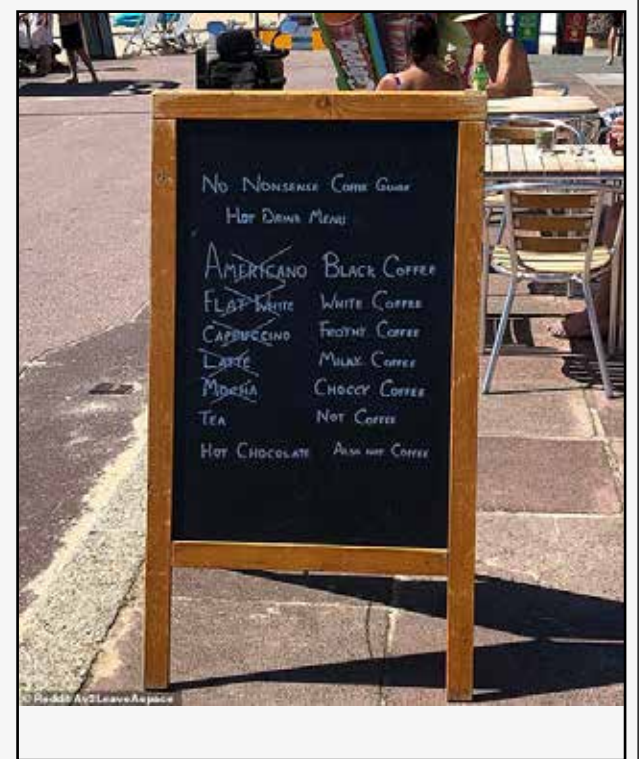 No Nonsense Coffee Guide
Hot Drink Menu
Americano Black Coffee
Flat White White Coffee
Cappuccino Frothy Coffee
Latte Milky Coffee
Mocha Choccy Coffee
Tea Not Coffee
Hot Chocolate Also not Coffee
© Reddit Av2LeaveAspace